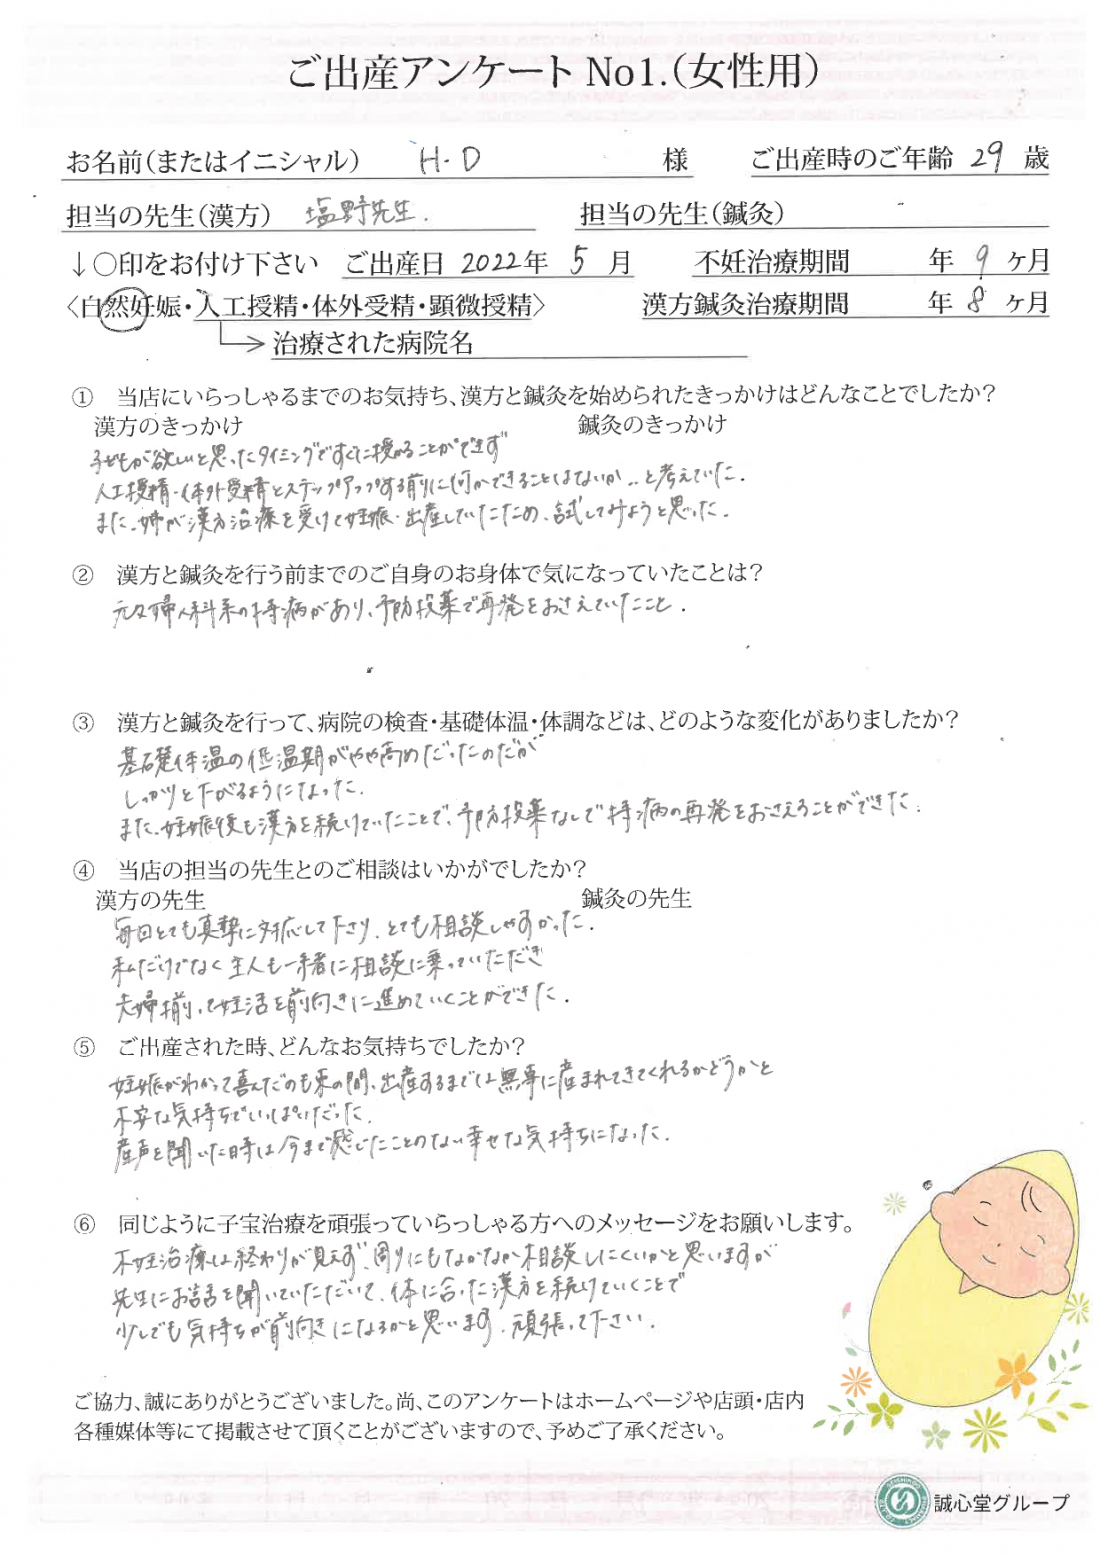 ご出産アンケート No1.（女性用）
お名前（またはイニシャル） H・D 様 ご出産時のご年齢 29 歳
担当の先生（漢方） 塩野先生. 担当の先生（鍼灸）
↓○印をお付け下さい ご出産日 2022年 5 月 不妊治療期間 年 9 ヶ月
〈自然妊娠・人工授精・体外受精・顕微授精〉 漢方鍼灸治療期間 年 8 ヶ月
治療された病院名
① 当店にいらっしゃるまでのお気持ち、漢方と鍼灸を始められたきっかけはどんなことでしたか？
漢方のきっかけ 鍼灸のきっかけ
子どもが欲しいと思ったタイミングですぐに授かることができず
人工授精・体外受精とステップアップする前に何かできることはないか..と考えていた.
また、姉が漢方治療を受けて妊娠・出産していたため、試してみようと思った.
② 漢方と鍼灸を行う前までのご自身のお身体で気になっていたことは？
元々婦人科系の持病があり、予防投薬で再発をおさえていたこと.
③ 漢方と鍼灸を行って、病院の検査・基礎体温・体調などは、どのような変化がありましたか？
基礎体温の低温期がやや高めだったのだが
しっかりと下がるようになった.
また、妊娠後も漢方を続けていたことで、予防投薬なしで持病の再発をおさえることができた.
④ 当店の担当の先生とのご相談はいかがでしたか？
漢方の先生 鍼灸の先生
毎回とても真摯に対応して下さり、とても相談しやすかった.
私だけでなく主人も一緒に相談に乗っていただき
夫婦揃って妊活を前向きに進めていくことができた.
⑤ ご出産された時、どんなお気持ちでしたか？
妊娠がわかって喜んだのも束の間、出産するまでは無事に産まれてきてくれるかどうかと
不安な気持ちでいっぱいだった.
産声を聞いた時は今まで感じたことのない幸せな気持ちになった.
⑥ 同じように子宝治療を頑張っていらっしゃる方へのメッセージをお願いします。
不妊治療は終わりが見えず、周りにもなかなか相談しにくいかと思いますが
先生にお話を聞いていただいて、体に合った漢方を続けていくことで
少しでも気持ちが前向きになるかと思います. 頑張って下さい.
ご協力、誠にありがとうございました。尚、このアンケートはホームページや店頭・店内
各種媒体等にて掲載させて頂くことがございますので、予めご了承ください。
誠心堂グループ